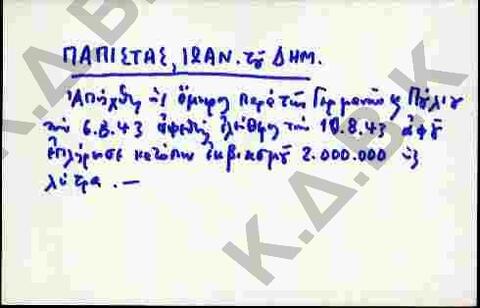 ΠΑΠΙΣΤΑΣ, ΙΩΑΝ. τοῦ ΔΗΜ.
Ἀπήχθη ὡς ὅμηρος παρά τῶν Γερμανῶν
τήν 6.8.43 ἀφεθείς ἐλεύθερος τήν 10.8.43 ἀφοῦ
ἐπλήρωσε κατόπιν ἐκβιασμοῦ 2.000.000 ὡς
λύτρα. —
Κ.Δ.Β.Κ
Κ.Δ.Β.Κ